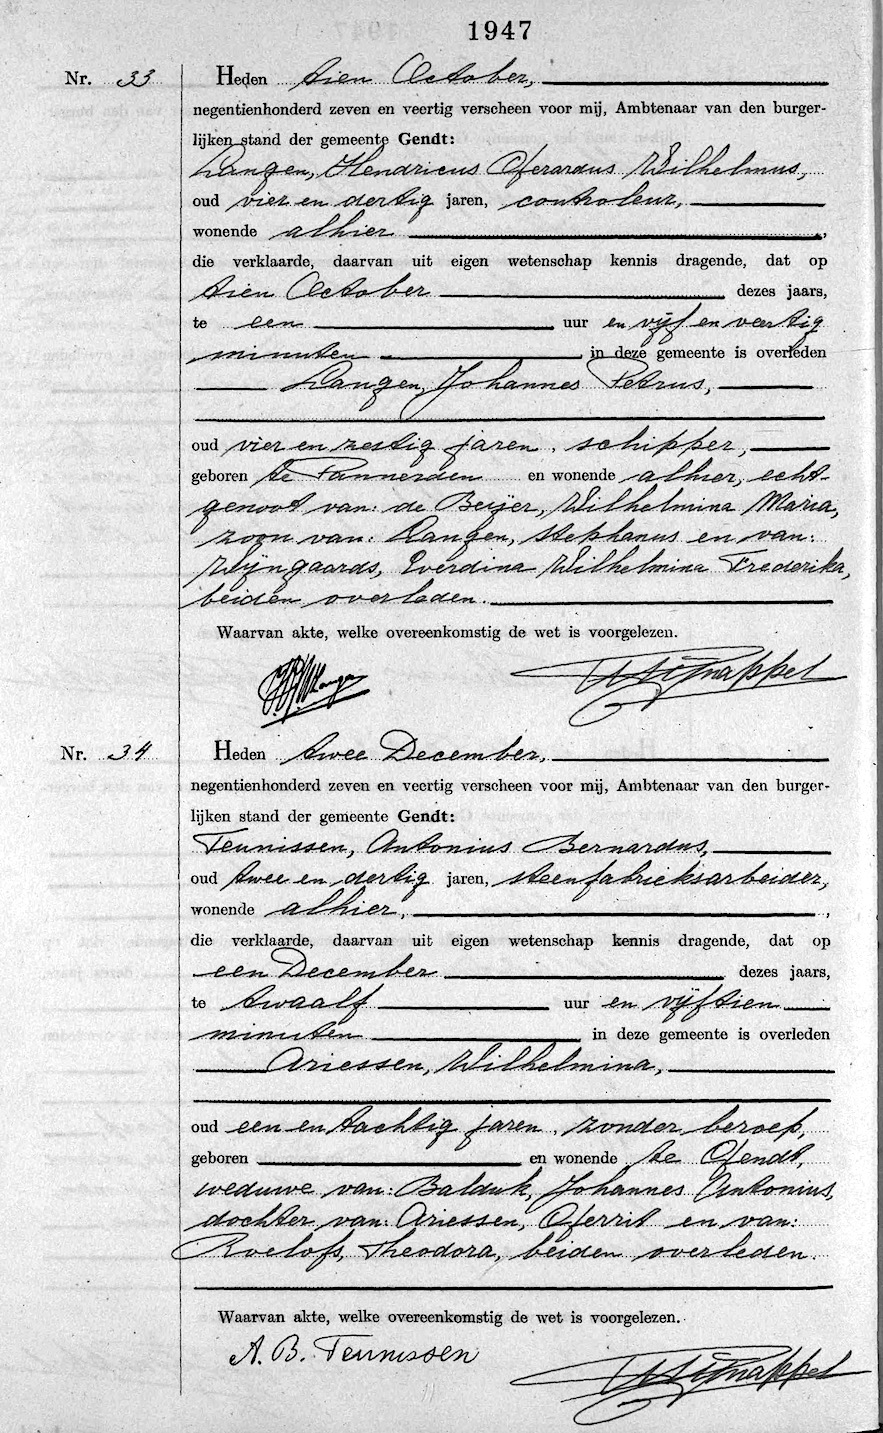 1947
Nr. 33 Heden tien October,
negentienhonderd zeven en veertig verscheen voor mij, Ambtenaar van den burger-
lijken stand der gemeente Gendt:
Langen, Hendricus Gerardus Wilhelmus,
oud vier en dertig jaren, controleur,
wonende alhier ,
die verklaarde, daarvan uit eigen wetenschap kennis dragende, dat op
tien October dezes jaars,
te een uur en vijf en veertig
minuten in deze gemeente is overleden
Langen, Johannes Petrus,
oud vier en zestig jaren, schipper,
geboren te Pannerden en wonende alhier, echt-
genoot van: de Beijer, Wilhelmina Maria,
zoon van: Langen, Stephanus en van:
Wijngaards, Everdina Wilhelmina Frederika,
beiden overleden.
Waarvan akte, welke overeenkomstig de wet is voorgelezen.
Nr. 34 Heden twee December,
negentienhonderd zeven en veertig verscheen voor mij, Ambtenaar van den burger-
lijken stand der gemeente Gendt:
Teunissen, Antonius Bernardus,
oud twee en dertig jaren, steenfabrieksarbeider,
wonende alhier, ,
die verklaarde, daarvan uit eigen wetenschap kennis dragende, dat op
een December dezes jaars,
te twaalf uur en vijftien
minuten in deze gemeente is overleden
Ariessen, Wilhelmina,
oud een en tachtig jaren, zonder beroep,
geboren en wonende te Gendt,
weduwe van: Balduk, Johannes Antonius,
dochter van: Ariessen, Gerrit en van:
Roelofs, Theodora, beiden overleden.
Waarvan akte, welke overeenkomstig de wet is voorgelezen.
A. B. Teunissen